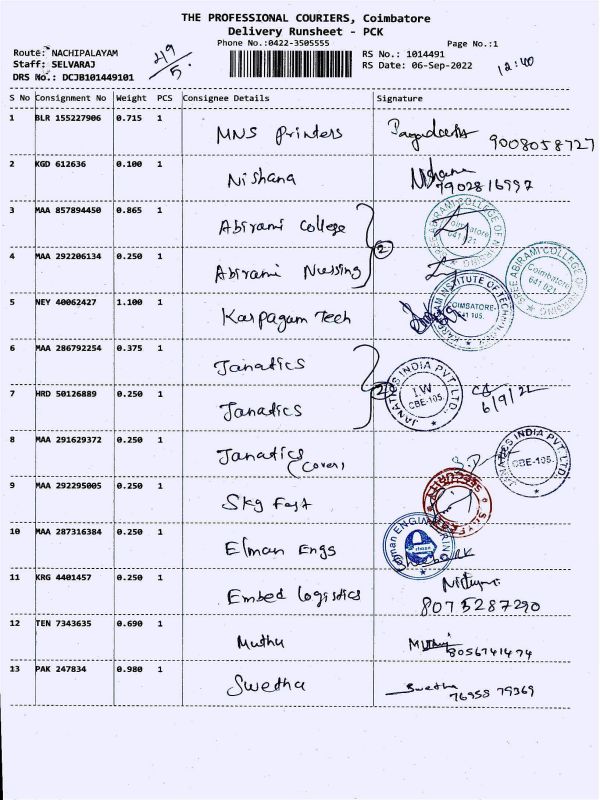 THE PROFESSIONAL COURIERS, Coimbatore
Delivery Runsheet - PCK
Phone No.:0422-3505555 Page No.:1
Route: NACHIPALAYAM
Staff: SELVARAJ
DRS No.: DCJB101449101
49/5.
RS No.: 1014491
RS Date: 06-Sep-2022
12:40
S No Consignment No Weight PCS Consignee Details Signature
1 BLR 155227906 0.715 1 MNS Printers 9008058727
2 KGD 612636 0.100 1 Nishana Nishana 7902816997
3 MAA 857894450 0.865 1 Abirami College
SREE ABIRAMI COLLEGE OF NURSING Coimbatore 641 021.
4 MAA 292206134 0.250 1 Abirami Nursing
2
SREE ABIRAMI COLLEGE OF NURSING Coimbatore 641 021.
5 NEY 40062427 1.100 1 Karpagam Tech
KARPAGAM INSTITUTE OF TECHNOLOGY COIMBATORE- 641 105.
6 MAA 286792254 0.375 1 Janatics
7 HRD 50126889 0.250 1 Janatics
2
JANATICS INDIA PVT. LTD. I.W CBE-105.
6/9/22
8 MAA 291629372 0.250 1 Janatics (Cover)
JANATICS INDIA PVT. LTD. CBE-105.
9 MAA 292295005 0.250 1 Skg Fast
10 MAA 287316384 0.250 1 Elman Engs
Elman ENGINEERING
11 KRG 4401457 0.250 1 Embed logistics
8075287290
12 TEN 7343635 0.690 1 Muthu Muthu 8056741474
13 PAK 247834 0.980 1 Swetha Swetha 76958 79369